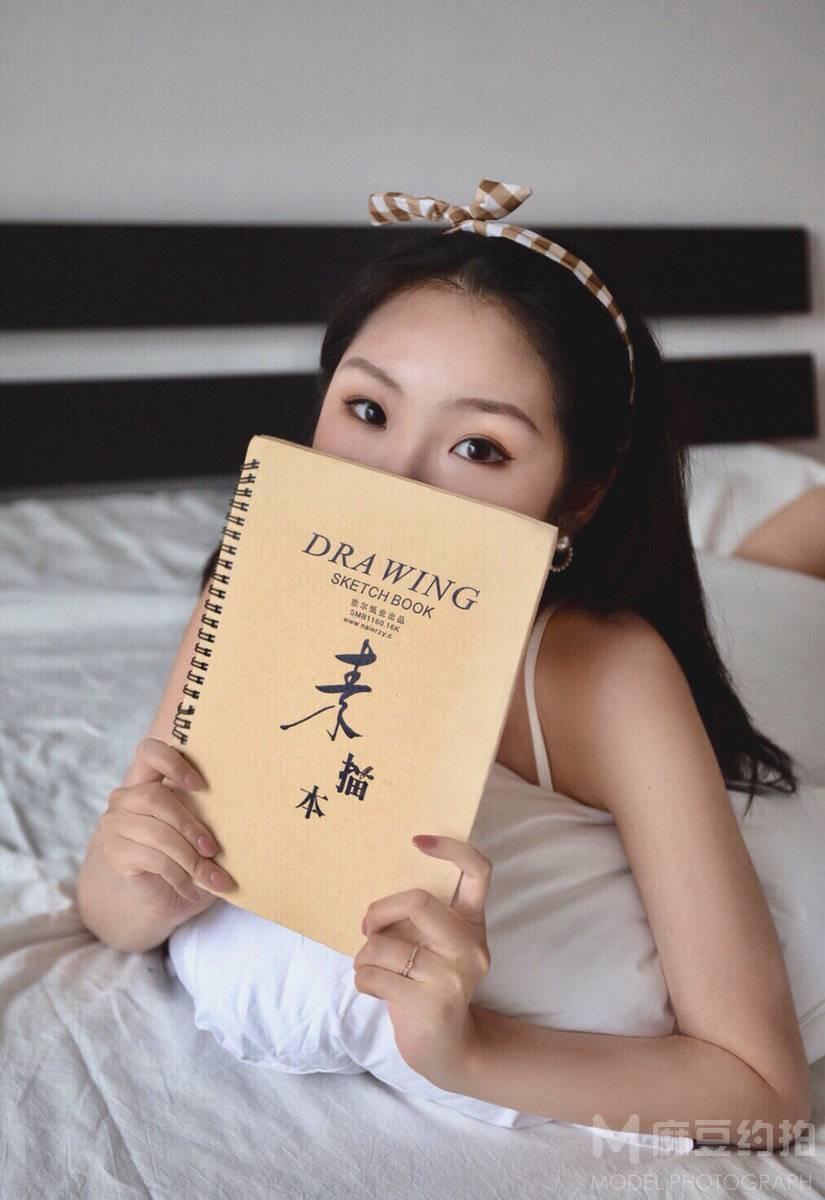 DRAWING
SKETCH BOOK
奈尔纸业出品
SMB1160.16K
www.naierzy.c
素
描
本
M 麻豆约拍
MODEL PHOTOGRAPH